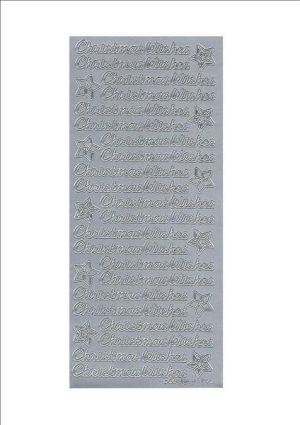 Christmas Wishes
Christmas Wishes
Christmas Wishes
Christmas Wishes
Christmas Wishes
Christmas Wishes
Christmas Wishes
Christmas Wishes
Christmas Wishes
Christmas Wishes
Christmas Wishes
Christmas Wishes
Christmas Wishes
Christmas Wishes
Christmas Wishes
Christmas Wishes
Christmas Wishes
Christmas Wishes
Christmas Wishes
Christmas Wishes
Christmas Wishes
Christmas Wishes